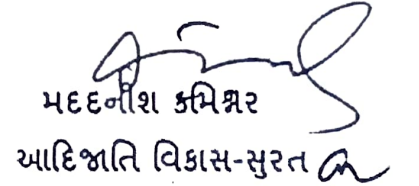 મદદનીશ કમિશ્નર
આદિજાતિ વિકાસ-સુરત